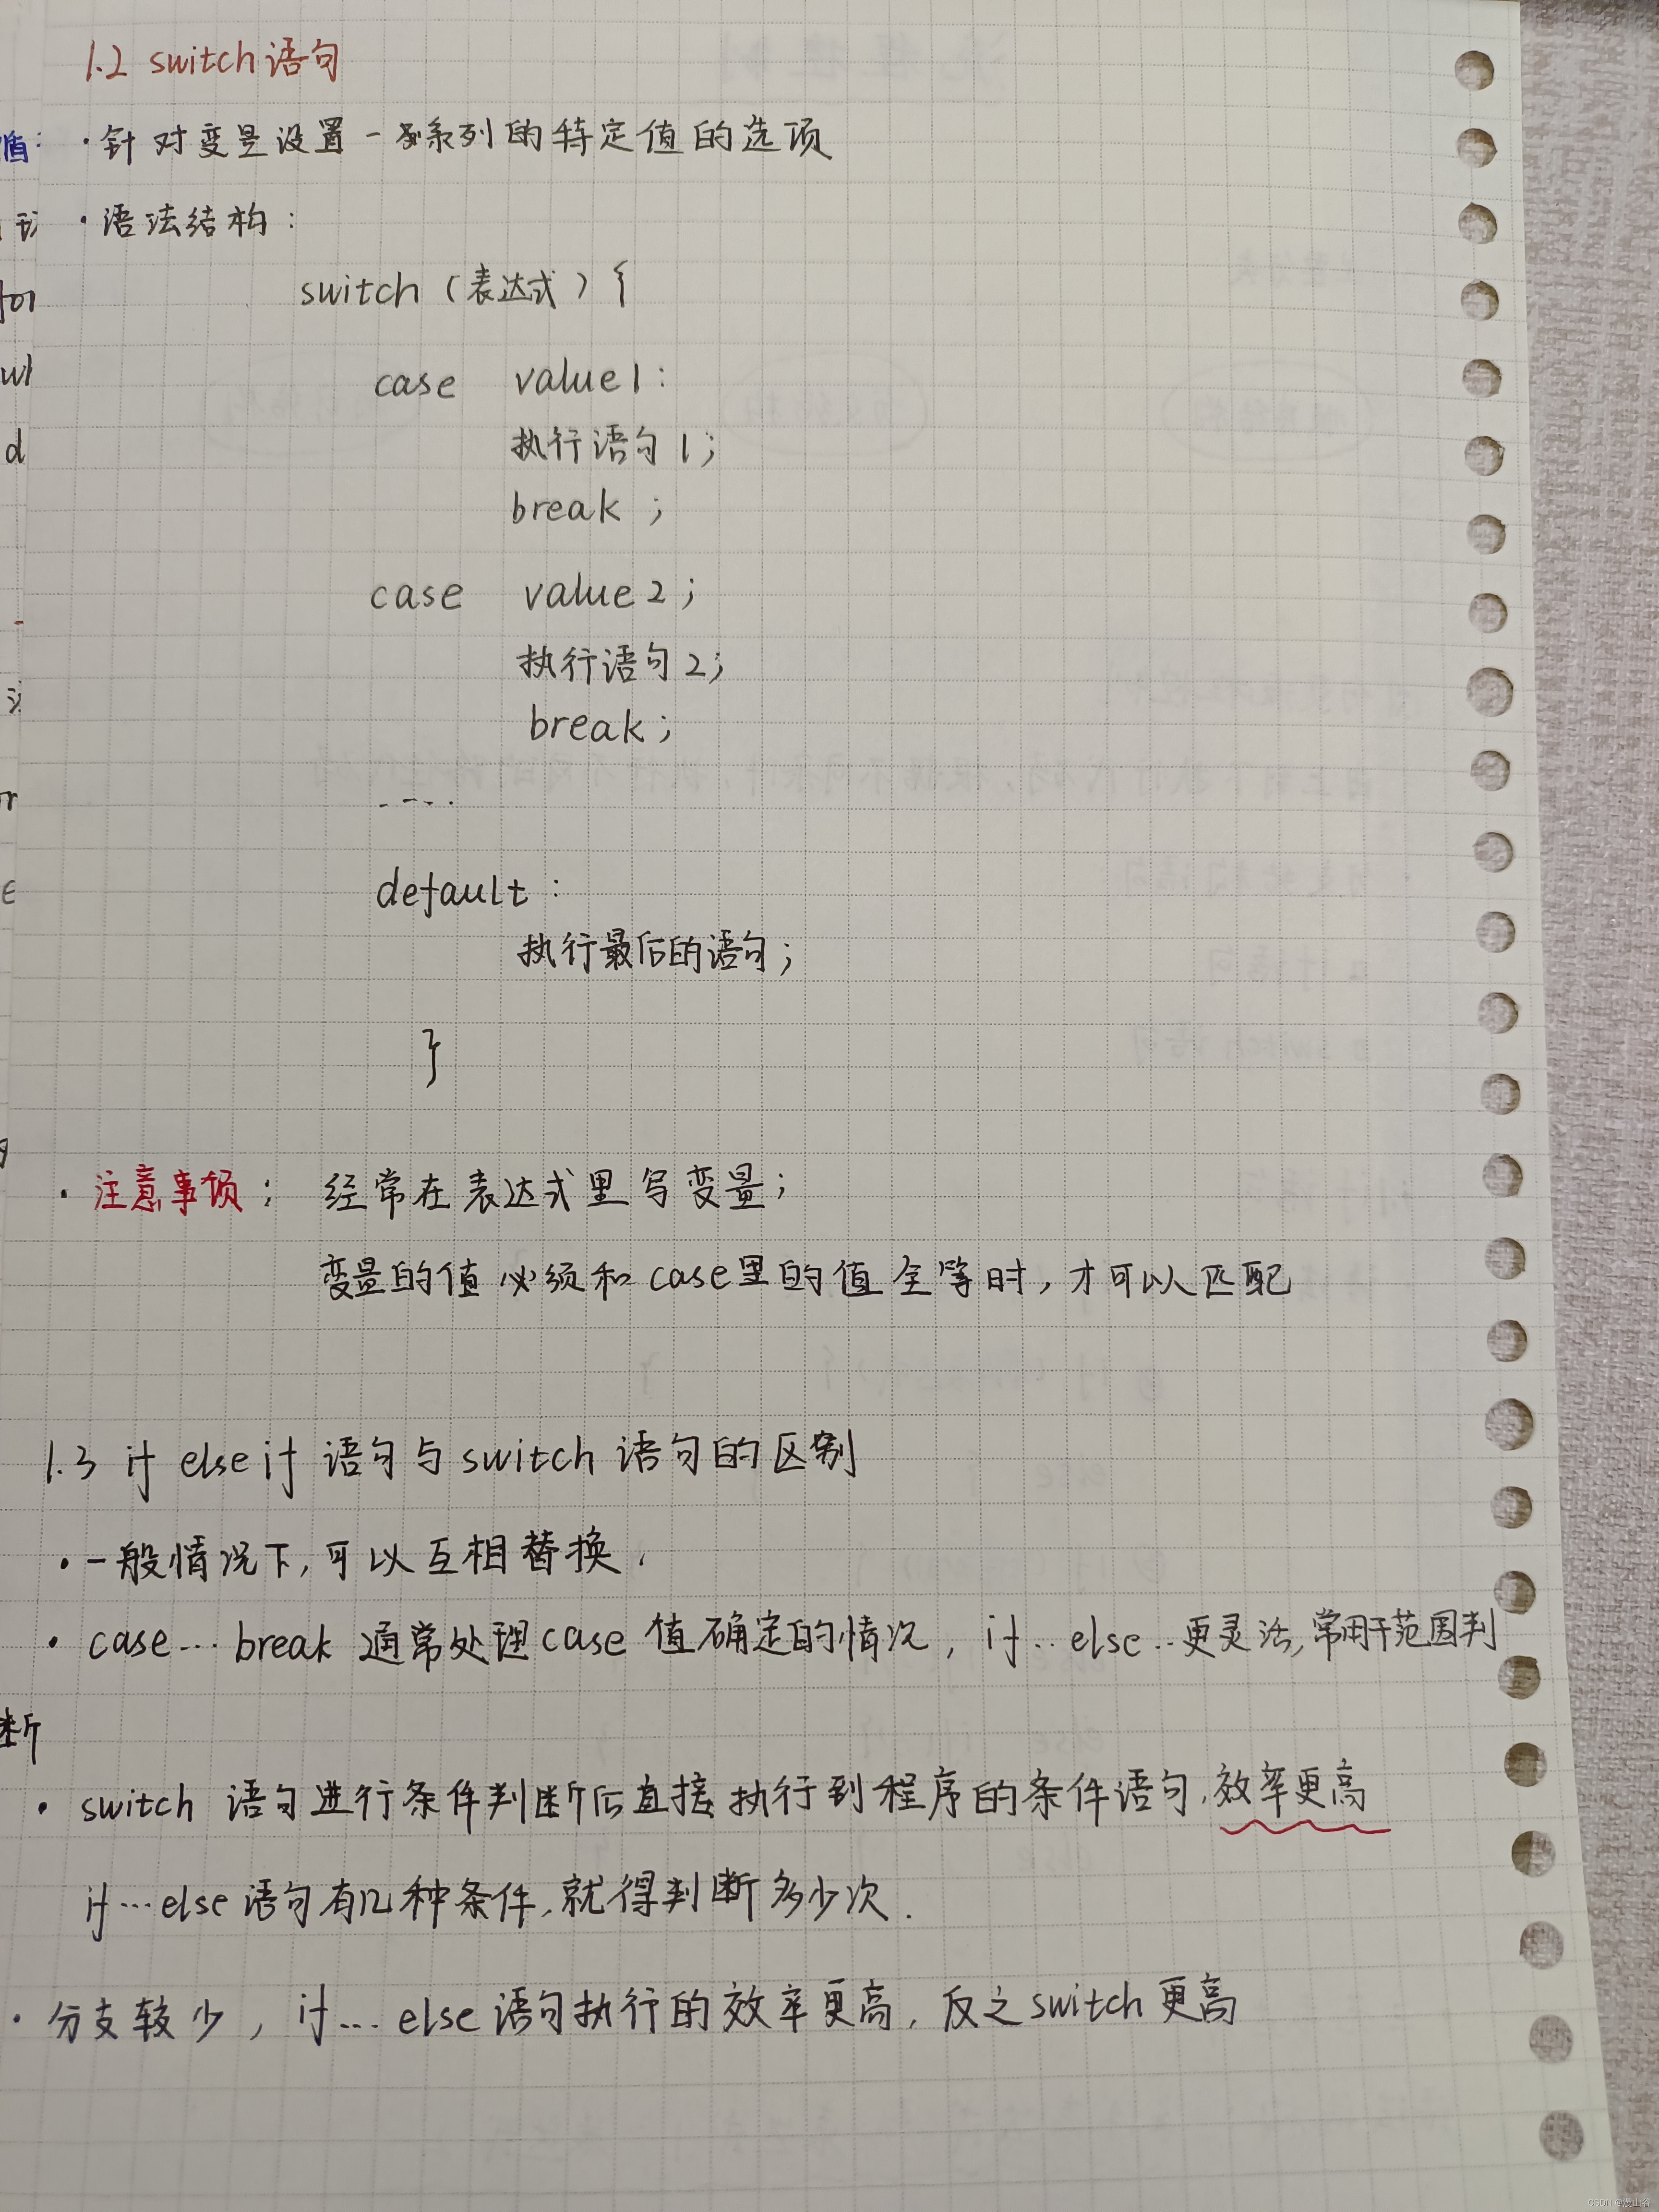 1.2 switch语句
·针对变量设置一系列的特定值的选项
·语法结构：
switch（表达式）{
case value1：
执行语句1；
break；
case value2；
执行语句2；
break；
----
default：
执行最后的语句；
}
·注意事项：经常在表达式里写变量；
变量的值必须和case里的值全等时，才可以匹配
1.3 if else if 语句与switch语句的区别
·一般情况下，可以互相替换．
·case…break 通常处理case值确定的情况，if…else…更灵活，常用于范围判
断
·switch 语句进行条件判断后直接执行到程序的条件语句，效率更高
if…else语句有几种条件，就得判断多少次．
·分支较少，if…else语句执行的效率更高，反之switch更高
CSDN @漫山谷